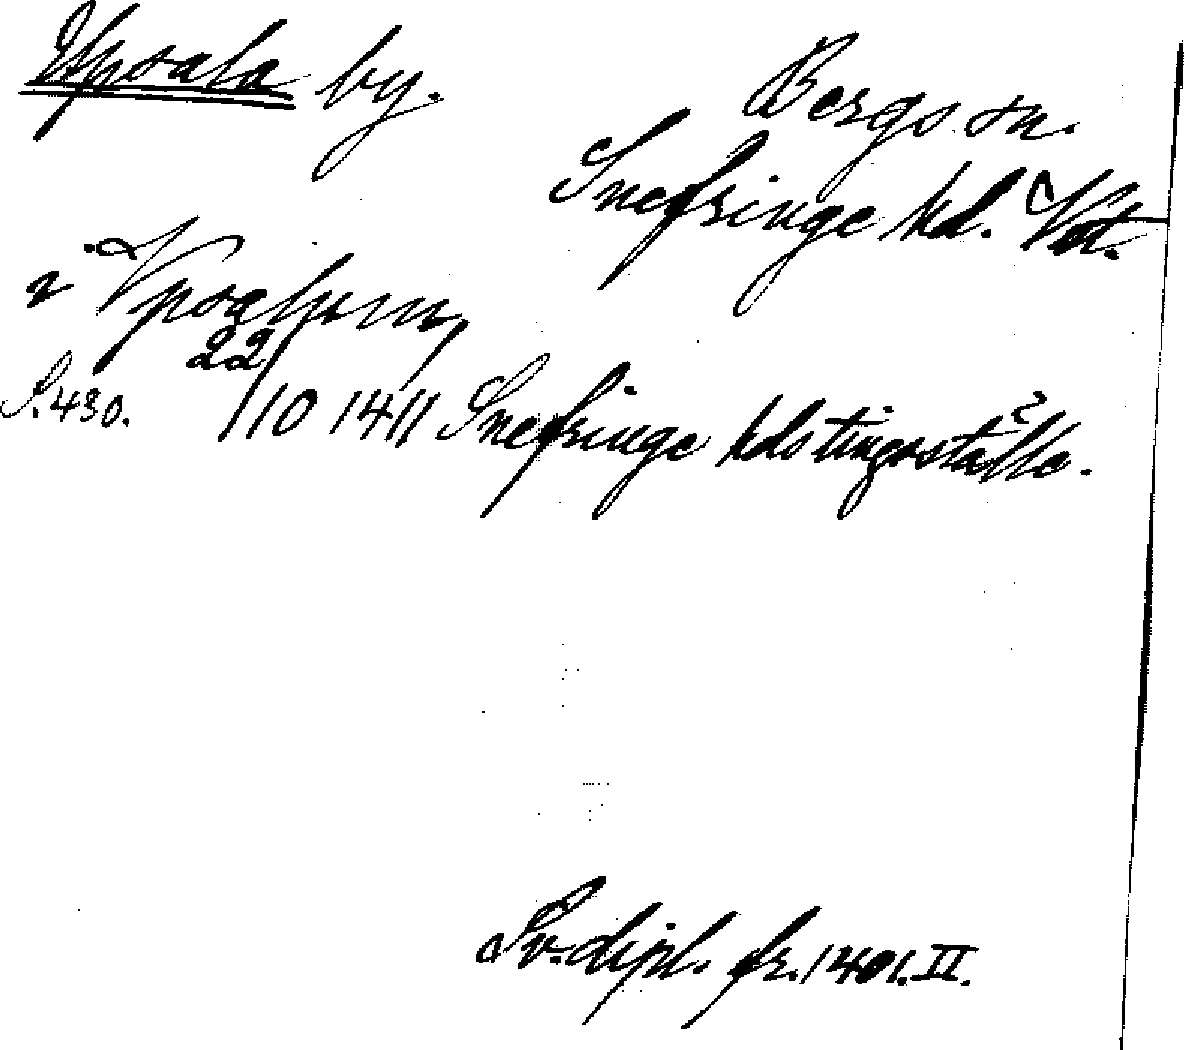 Upsala by.
Bergs sn.
Snefringe hd. Vstm.
i Vpsalum,
S. 430. 22/10 1411 Snefringe hds tingsställe.
Sv. dipl. fr. 1401. II.